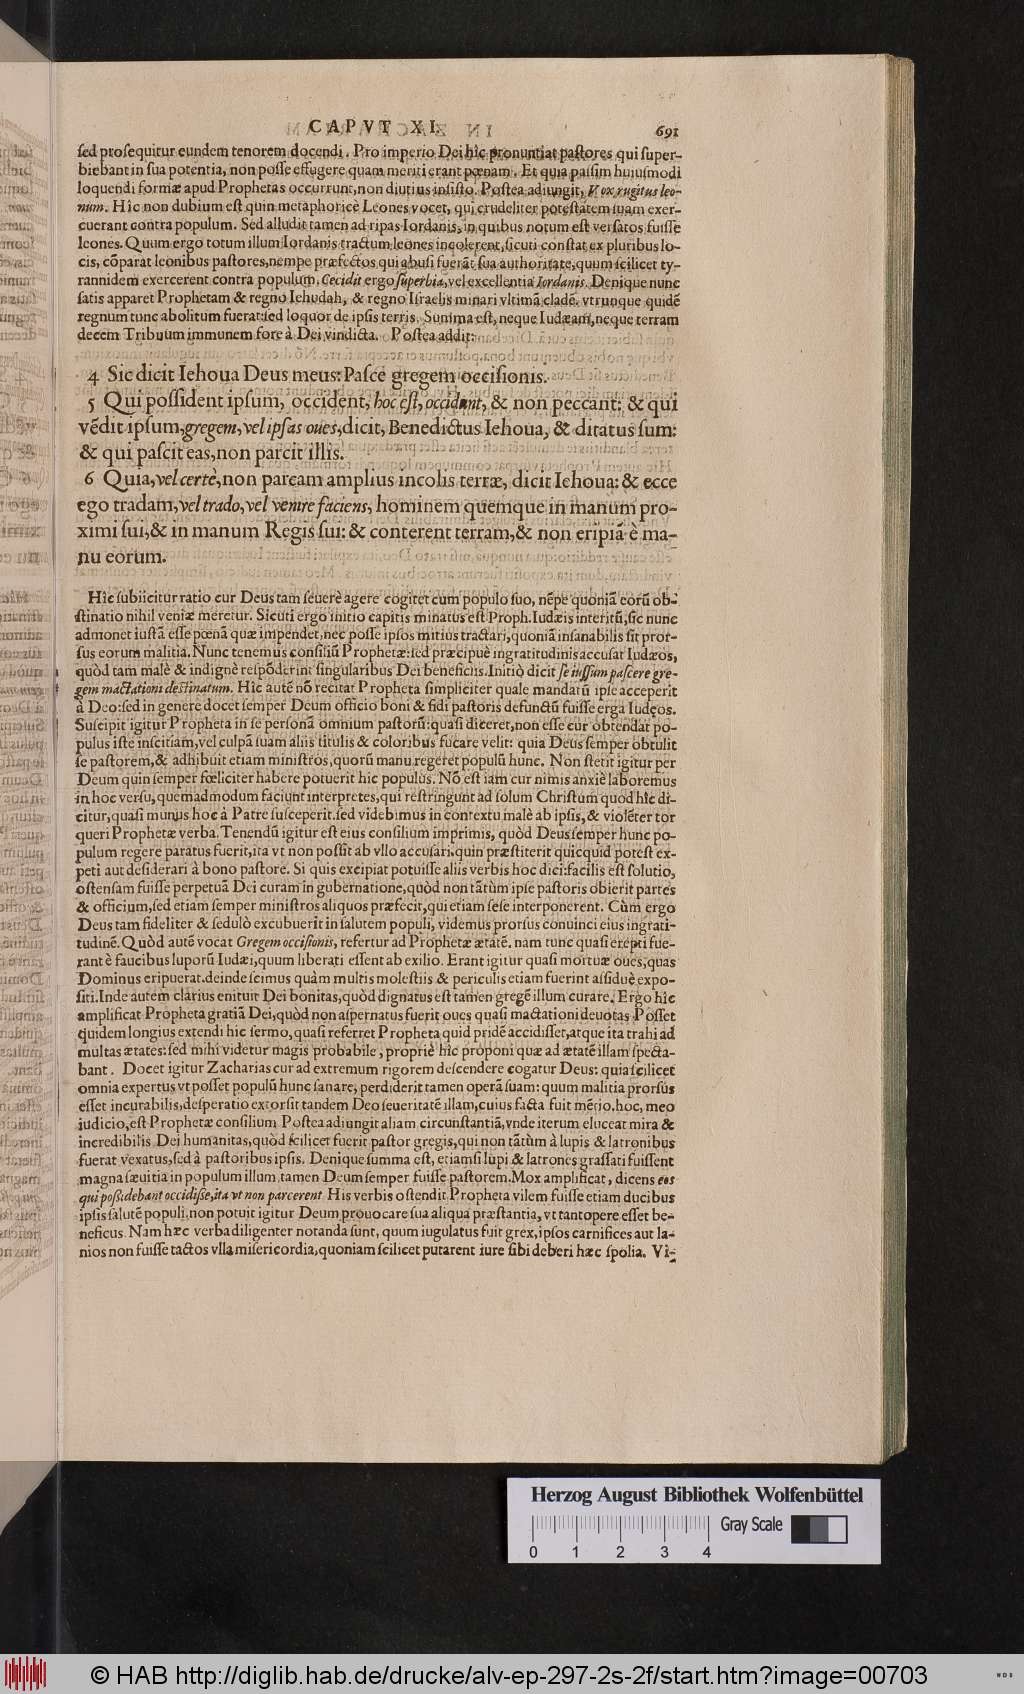 CAPVT XI. 691
ſed proſequitur eundem tenorem docendi. Pro imperio Dei hîc pronuntiat paſtores qui ſuper-
biebant in ſua potentia, non poſſe effugere quam meriti erant pœnam. Et quia paſſim huiuſmodi
loquendi formæ apud Prophetas occurrunt, non diutius inſiſto. Poſtea adiungit, Vox rugitus leo-
num. Hîc non dubium eſt quin metaphoricè Leones vocet, qui crudeliter poteſtatem ſuam exer-
cuerant contra populum. Sed alludit tamen ad ripas Iordanis, in quibus notum eſt verſatos fuiſſe
leones. Quum ergo totum illum Iordanis tractum leones incolerent, ſicuti conſtat ex pluribus lo-
cis, cõparat leonibus paſtores, nempe præfectos qui abuſi fuerãt ſua authoritate, quum ſcilicet ty-
rannidem exercerent contra populum. Cecidit ergo ſuperbia, vel excellentia Iordanis. Denique nunc
ſatis apparet Prophetam & regno Iehudah, & regno Iſraelis minari vltimã cladẽ. vtrunque quidẽ
regnum tunc abolitum fuerat: ſed loquor de ipſis terris. Summa eſt, neque Iudæam, neque terram
decem Tribuum immunem fore à Dei vindicta. Poſtea addit:
4 Sic dicit Iehoua Deus meus: Paſce gregem occiſionis.
5 Qui poſſident ipſum, occident, hoc eſt, occidunt, & non peccant: & qui
vẽdit ipſum, gregem, vel ipſas oues, dicit, Benedictus Iehoua, & ditatus ſum:
& qui paſcit eas, non parcit illis.
6 Quia, vel certè, non parcam amplius incolis terræ, dicit Iehoua: & ecce
ego tradam, vel trado, vel venire faciens, hominem quemque in manum pro-
ximi ſui, & in manum Regis ſui: & conterent terram, & non eripiã è ma-
nu eorum.
Hîc ſubiicitur ratio cur Deus tam ſeuerè agere cogitet cum populo ſuo, nẽpe quoniã eorũ ob-
ſtinatio nihil veniæ meretur. Sicuti ergo initio capitis minatus eſt Proph. Iudæis interitũ, ſic nunc
admonet iuſtã eſſe pœnã quæ impendet, nec poſſe ipſos mitius tractari, quoniã inſanabilis ſit pror-
ſus eorum malitia. Nunc tenemus conſiliũ Prophetæ: ſed præcipuè ingratitudinis accuſat Iudæos,
quòd tam malè & indignè reſpõderint ſingularibus Dei beneficiis. Initiò dicit ſe iuſſum paſcere gre-
gem mactationi deſtinatum. Hîc autẽ nõ recitat Propheta ſimpliciter quale mandatũ ipſe acceperit
à Deo: ſed in genere docet ſemper Deum officio boni & fidi paſtoris defunctũ fuiſſe erga Iudęos.
Suſcipit igitur Propheta in ſe perſonã omnium paſtorũ: quaſi diceret, non eſſe cur obtendat po-
pulus iſte inſcitiam, vel culpã ſuam aliis titulis & coloribus fucare velit: quia Deus ſemper obtulit
ſe paſtorem, & adhibuit etiam miniſtros, quorũ manu regeret populũ hunc. Non ſtetit igitur per
Deum quin ſemper fœliciter habere potuerit hic populus. Nõ eſt iam cur nimis anxiè laboremus
in hoc verſu, quemadmodum faciunt interpretes, qui reſtringunt ad ſolum Chriſtum quod hîc di-
citur, quaſi munus hoc à Patre ſuſceperit. ſed videbimus in contextu malè ab ipſis, & violẽter tor
queri Prophetæ verba. Tenendũ igitur eſt eius conſilium imprimis, quòd Deus ſemper hunc po-
pulum regere paratus fuerit, ita vt non poſſit ab vllo accuſari, quin præſtiterit quicquid poteſt ex-
peti aut deſiderari à bono paſtore. Si quis excipiat potuiſſe aliis verbis hoc dici: facilis eſt ſolutio,
oſtenſam fuiſſe perpetuã Dei curam in gubernatione, quòd non tãtùm ipſe paſtoris obierit partes
& officium, ſed etiam ſemper miniſtros aliquos præfecit, qui etiam ſeſe interponerent. Cùm ergo
Deus tam fideliter & ſedulò excubuerit in ſalutem populi, videmus prorſus conuinci eius ingrati-
tudinẽ. Quòd autẽ vocat Gregem occiſionis, refertur ad Prophetæ ætatẽ. nam tunc quaſi erepti fue-
rant è faucibus luporũ Iudæi, quum liberati eſſent ab exilio. Erant igitur quaſi mortuæ oues, quas
Dominus eripuerat. deinde ſcimus quàm multis moleſtiis & periculis etiam fuerint aſſiduè expo-
ſiti. Inde autem clarius enituit Dei bonitas, quòd dignatus eſt tamen gregẽ illum curare. Ergo hîc
amplificat Propheta gratiã Dei, quòd non aſpernatus fuerit oues quaſi mactationi deuotas. Poſſet
quidem longius extendi hic ſermo, quaſi referret Propheta quid pridẽ accidiſſet, atque ita trahi ad
multas ætates: ſed mihi videtur magis probabile, propriè hîc proponi quæ ad ætatẽ illam ſpecta-
bant. Docet igitur Zacharias cur ad extremum rigorem deſcendere cogatur Deus: quia ſcilicet
omnia expertus vt poſſet populũ hunc ſanare, perdiderit tamen operã ſuam: quum malitia prorſus
eſſet incurabilis, deſperatio extorſit tandem Deo ſeueritatẽ illam, cuius facta fuit mẽtio. hoc, meo
iudicio, eſt Prophetæ conſilium. Poſtea adiungit aliam circunſtantiã, vnde iterum eluceat mira &
incredibilis Dei humanitas, quòd ſcilicet fuerit paſtor gregis, qui non tãtùm à lupis & latronibus
fuerat vexatus, ſed à paſtoribus ipſis. Denique ſumma eſt, etiamſi lupi & latrones graſſati fuiſſent
magna ſæuitia in populum illum, tamen Deum ſemper fuiſſe paſtorem. Mox amplificat, dicens eos
qui poſsidebant occidiſſe, ita vt non parcerent. His verbis oſtendit Propheta vilem fuiſſe etiam ducibus
ipſis ſalutẽ populi. non potuit igitur Deum prouocare ſua aliqua præſtantia, vt tantopere eſſet be-
neficus. Nam hæc verba diligenter notanda ſunt, quum iugulatus fuit grex, ipſos carnifices aut la-
nios non fuiſſe tactos vlla miſericordia, quoniam ſcilicet putarent iure ſibi deberi hæc ſpolia. Vi-
Herzog August Bibliothek Wolfenbüttel
Gray Scale
0 1 2 3 4
© HAB http://diglib.hab.de/drucke/alv-ep-297-2s-2f/start.htm?image=00703